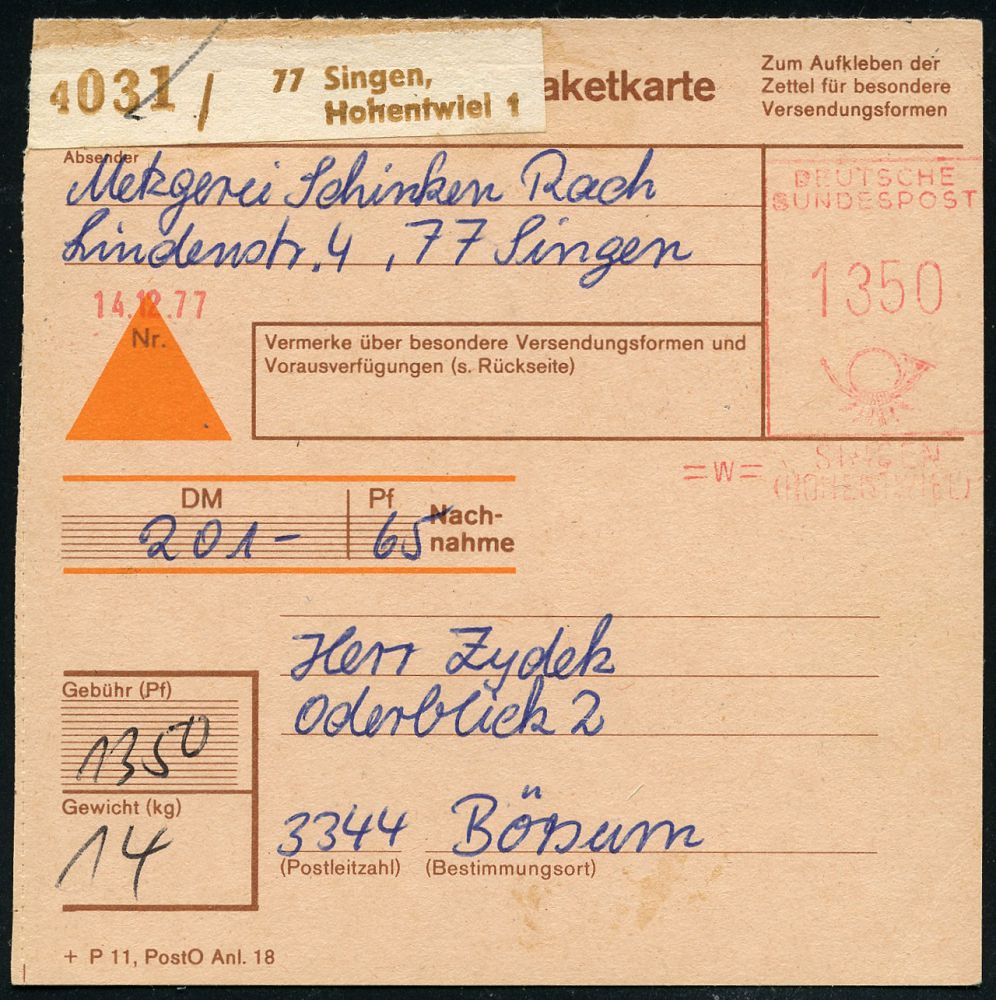 4031 /
77 Singen,
Hohentwiel 1
aketkarte
Zum Aufkleben der
Zettel für besondere
Versendungsformen
Absender
Metzgerei Schinken Rach
Lindenstr. 4, 77 Singen
DEUTSCHE
BUNDESPOST
1350
14.12.77
Nr.
Vermerke über besondere Versendungsformen und
Vorausverfügungen (s. Rückseite)
=W=
SINGEN
(HOHENTWIEL)
DM Pf
201- 65
Nach-
nahme
Herr Zydek
Oderblick 2
Gebühr (Pf)
1350
Gewicht (kg)
14
3344 Börsum
(Postleitzahl) (Bestimmungsort)
+ P 11, PostO Anl. 18